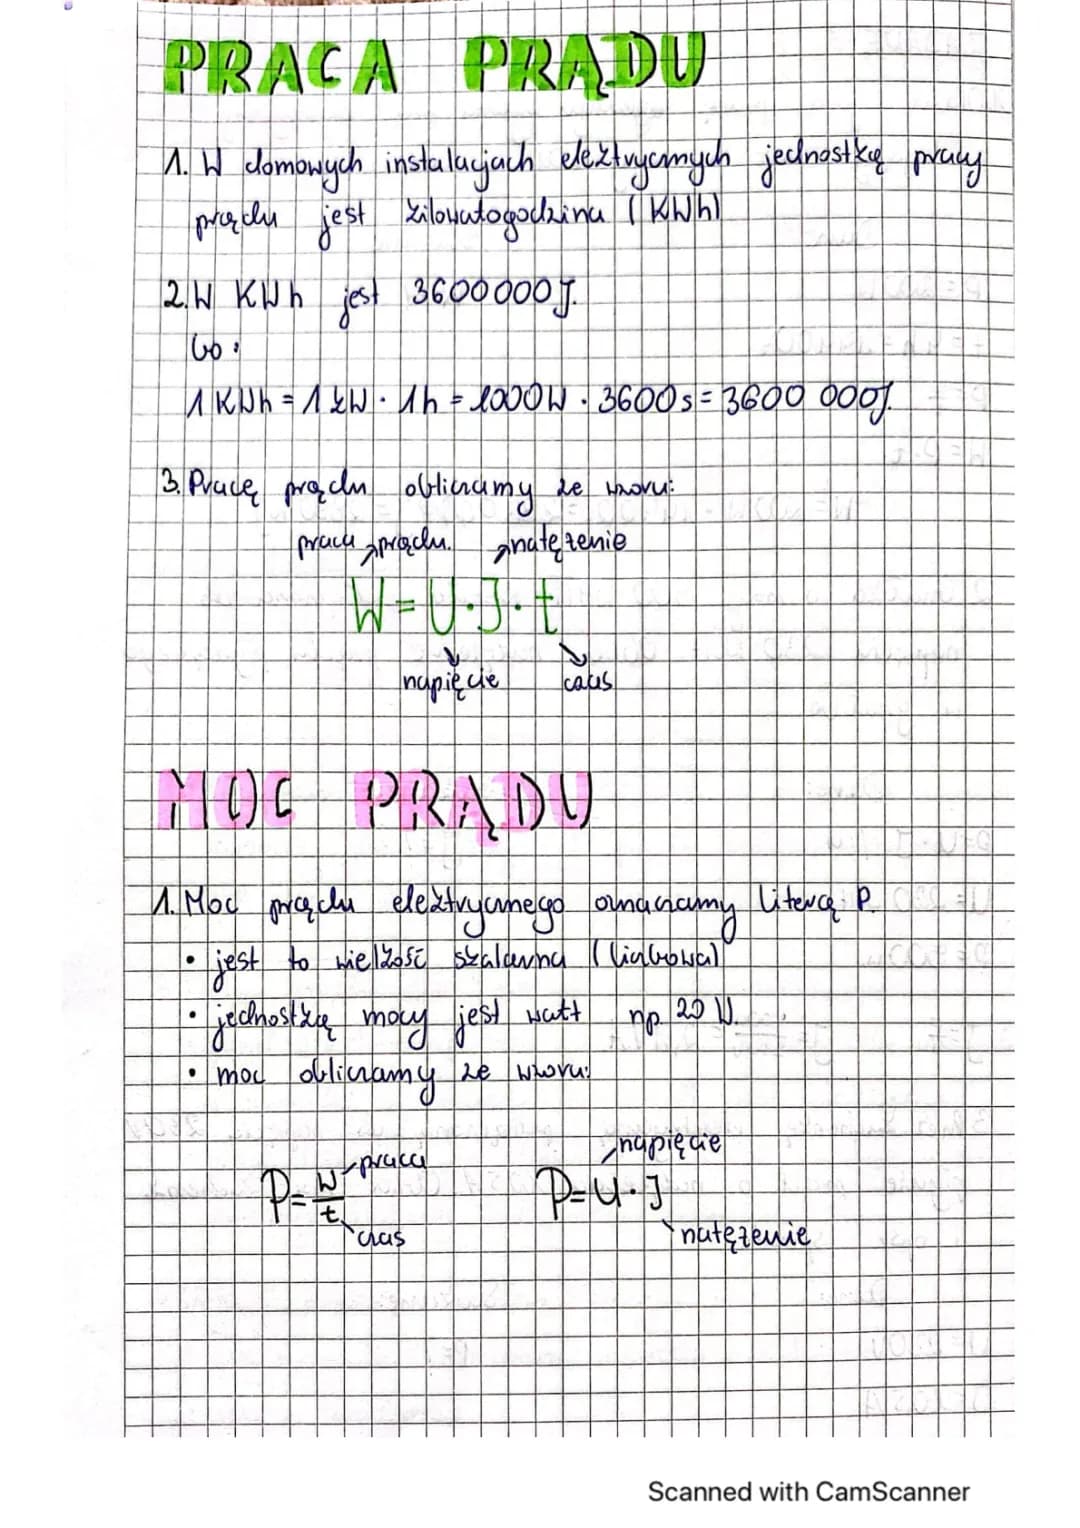 PRACA PRĄDU
1. W domowych instalacjach elektrycznych jednostką pracy
prądu jest kilowatogodzina (KWh)
2. W KWh jest 3600000J.
bo:
1 KWh = 1 kW · 1h = 1000W · 3600s = 3600 000J.
3. Pracę prądu obliczamy ze wzoru:
praca prądu. natężenie
W = U · J · t
napięcie czas
MOC PRĄDU
1. Moc prądu elektrycznego oznaczamy literą P.
• jest to wielkość skalarna (liczbowa)
• jednostką mocy jest watt np. 20 W.
• moc obliczamy ze wzoru:
napięcie
praca
P = W/t P = U · J
czas natężenie
Scanned with CamScanner